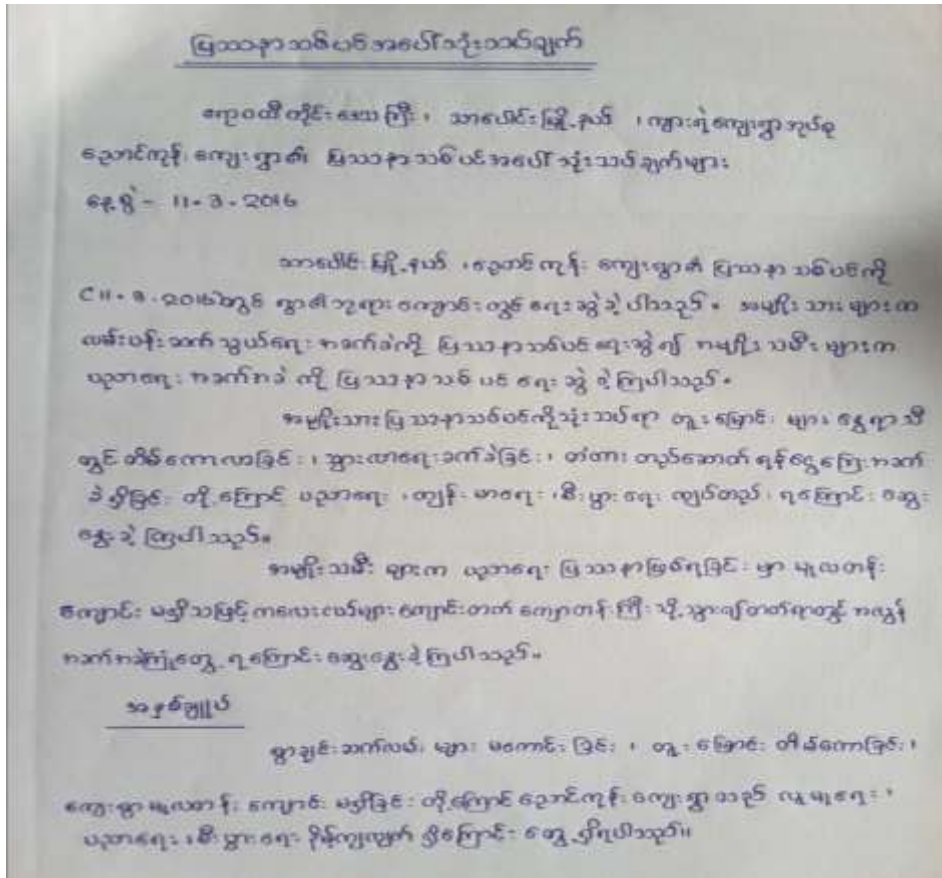 ပြဿနာသစ်ပင်အပေါ်သုံးသပ်ချက်
ဧရာဝတီတိုင်းဒေသကြီး၊ သာပေါင်းမြို့နယ် ၊ကျားရဲကျေးရွာအုပ်စု
ညောင်ကုန်းကျေးရွာ၏ ပြဿနာသစ်ပင်အပေါ်သုံးသပ်ချက်များ
နေ့စွဲ - 11-3-2016
သာပေါင်းမြို့နယ် ၊ညောင်ကုန်း ကျေးရွာ၏ ပြဿနာသစ်ပင်ကို
(11-3-2016)တွင် ရွာ၏ဘုရားကျောင်းတွင် ရေးဆွဲခဲ့ပါသည်။ အမျိုးသားများက
လမ်းပန်းဆက်သွယ်ရေးအခက်ခဲကို ပြဿနာသစ်ပင်ရေးဆွဲ၍ အမျိုးသမီးများက
ပညာရေးအခက်အခဲကို ပြဿနာသစ်ပင်ရေးဆွဲခဲ့ကြပါသည်။
အမျိုးသားပြဿနာသစ်ပင်ကိုသုံးသပ်ရာ တူးမြောင်းများ နွေရာသီ
တွင်တိမ်ကောလာခြင်း၊ သွားလာရေးခက်ခဲခြင်း၊ တံတားတည်ဆောက်ရန်ငွေကြေးအခက်
ခဲရှိခြင်းတို့ကြောင့် ပညာရေး၊ကျန်းမာရေး၊စီးပွားရေးကျပ်တည်းရကြောင်း ဆွေး
နွေးခဲ့ကြပါသည်။
အမျိုးသမီးများက ပညာရေးပြဿနာဖြစ်ရခြင်းမှာ မူလတန်း
ကျောင်းမရှိသဖြင့်ကလေးငယ်များကျောင်းတက် ကျောတန်းကြီးသို့သွား၍တတ်ရာတွင် အလွန်
အခက်အခဲကြုံတွေ့ရကြောင်းဆွေးနွေးခဲ့ကြပါသည်။
အနှစ်ချုပ်
ရွာချင်းဆက်လမ်းများ မကောင်းခြင်း ၊ တူးမြောင်းတိမ်ကောခြင်း၊
ကျေးရွာမူလတန်းကျောင်းမရှိခြင်းတို့ကြောင့်ညောင်ကုန်းကျေးရွာသည် လူမှုရေး၊
ပညာရေး၊စီးပွားရေးနိမ့်ကျလျက်ရှိကြောင်းတွေ့ရှိရပါသည်။